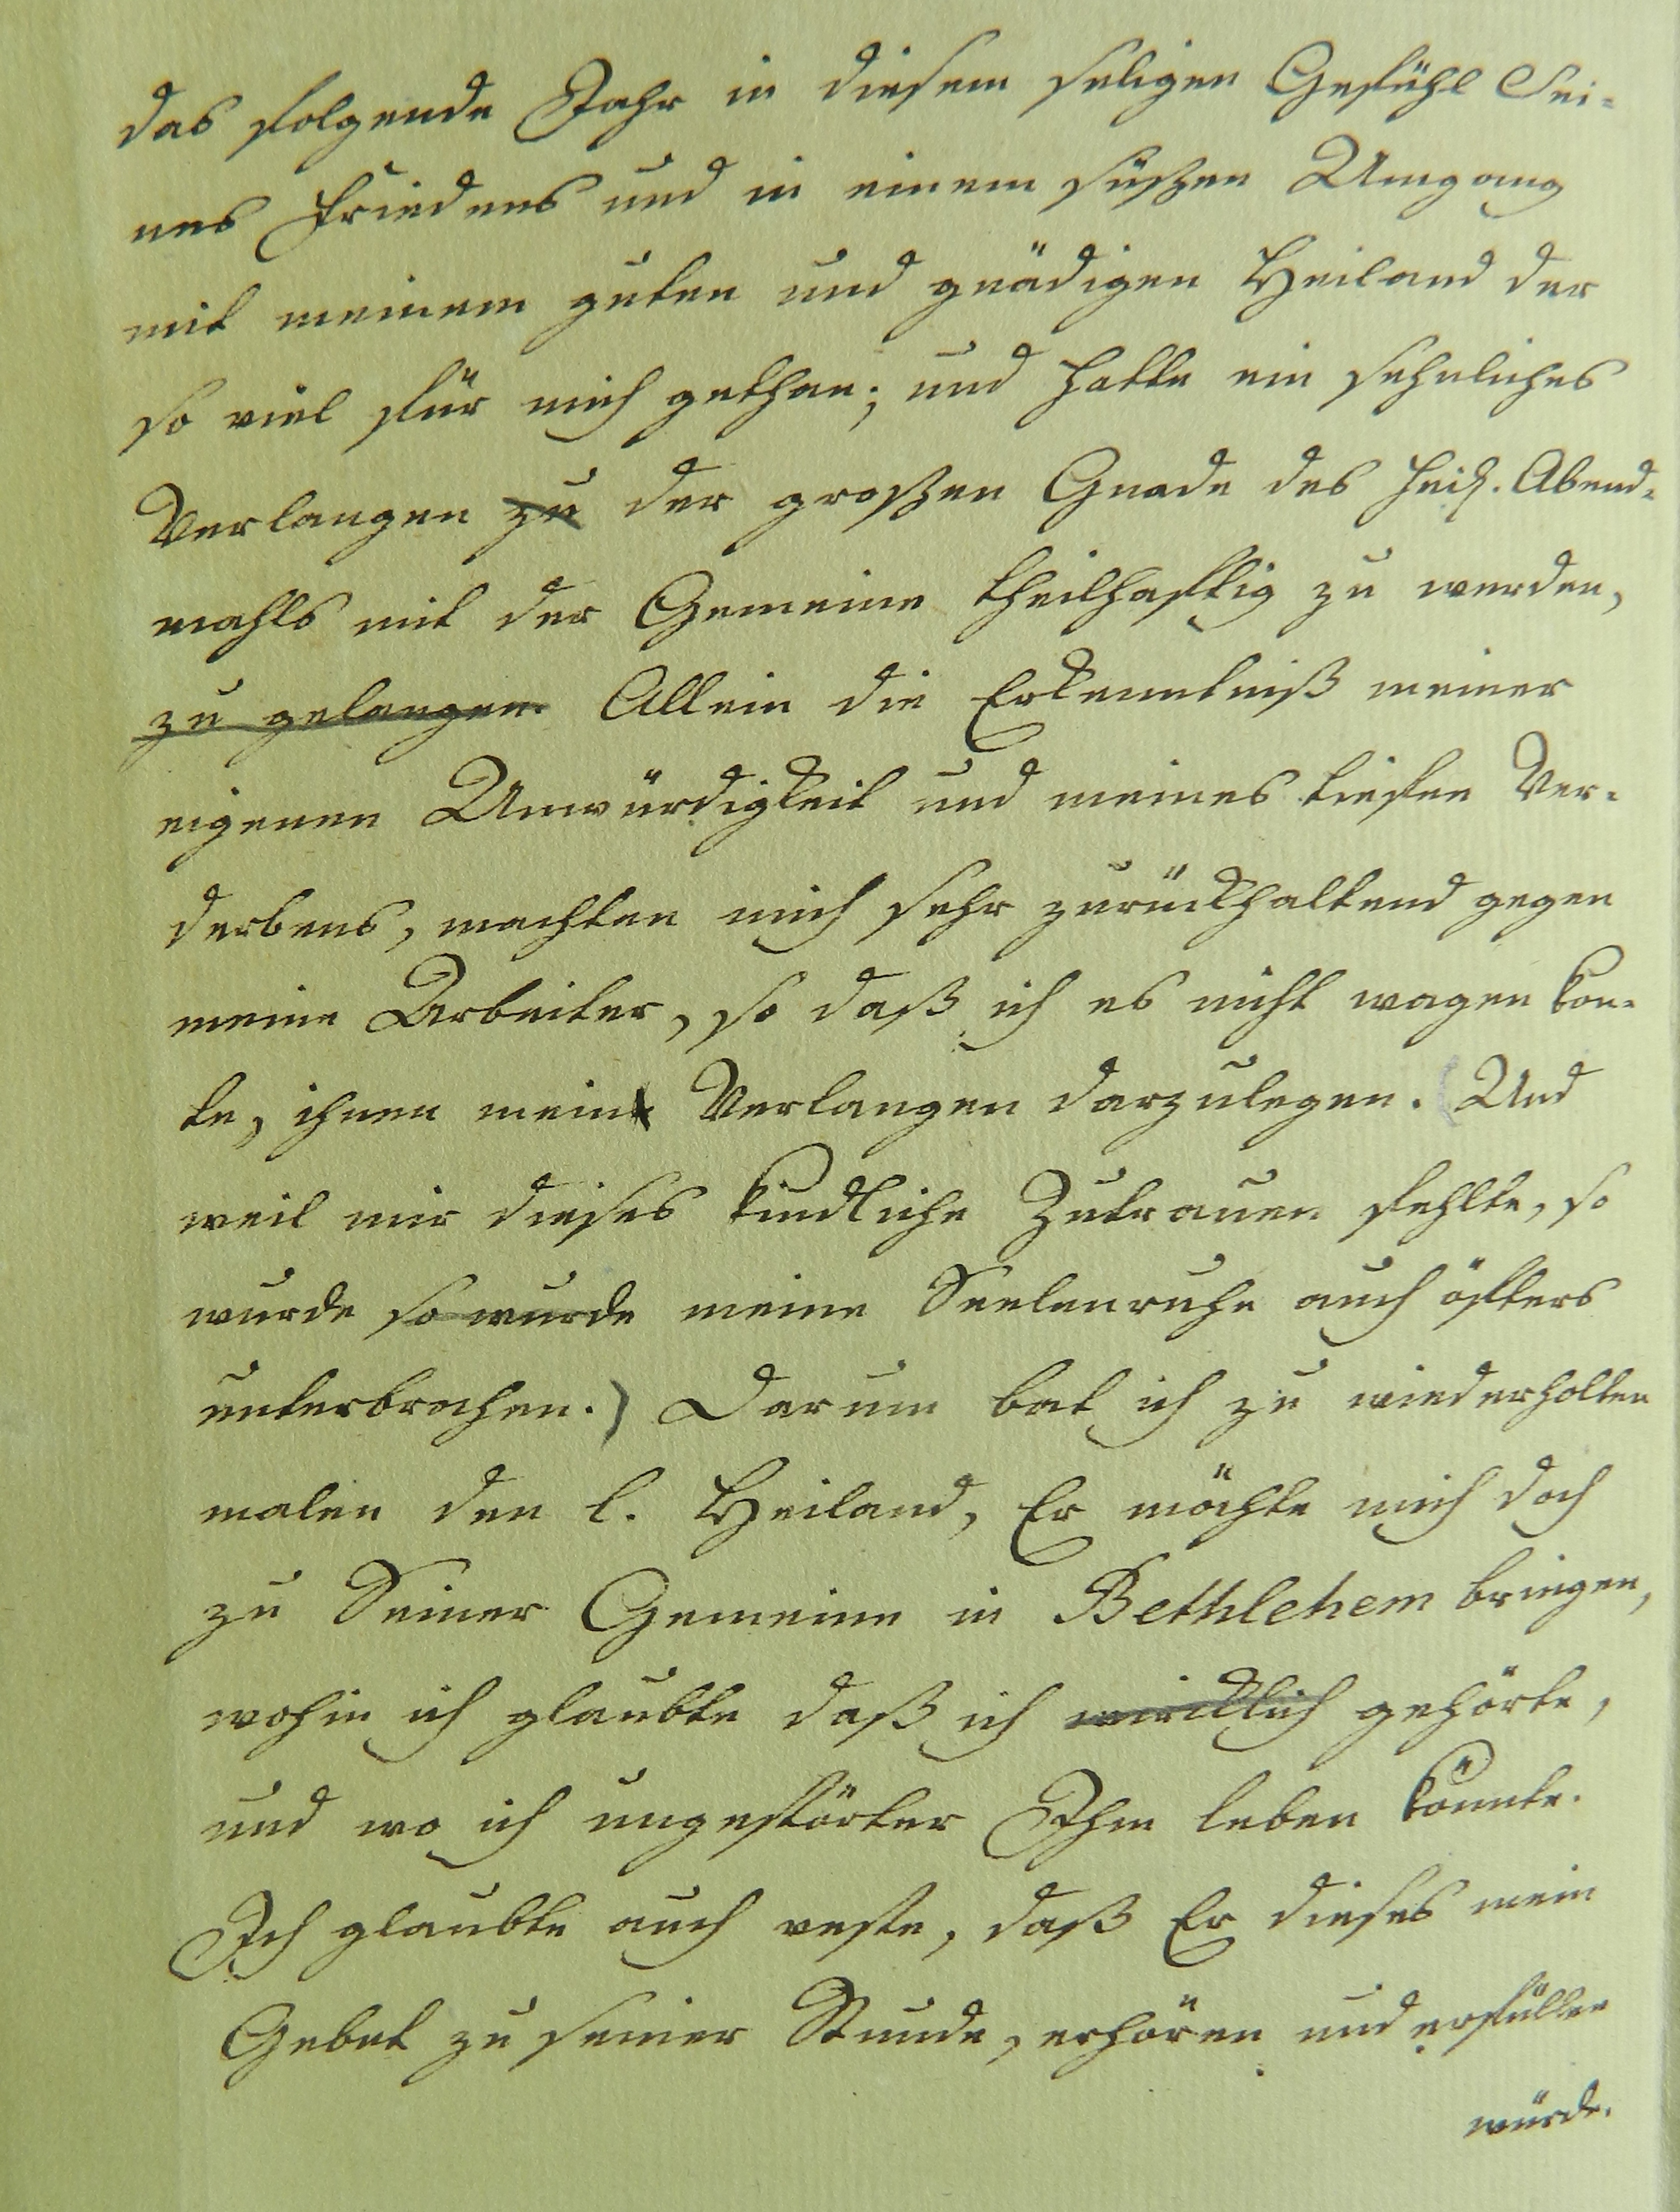 das folgende Jahr in diesem seligen Gefühl Sei-
nes Friedens und in einem süßen Umgang
mit meinem guten und gnädigen Heiland der
so viel für mich gethan; und hatte ein sehnliches
Verlangen zu der großen Gnade des Heil. Abend-
mahls mit der Gemeine theilhaftig zu werden,
zu gelangen. Allein die Erkenntniß meiner
eigenen Unwürdigkeit und meines tiefen Ver-
derbens, machten mich sehr zurückhaltend gegen
meine Arbeiter, so daß ich es nicht wagen kon-
te, ihnen mein Verlangen darzulegen. (Und
weil mir dieses kindliche Zutrauen fehlte, so
wurde so wurde meine Seelenruhe auch öfters
unterbrochen.) Darum bat ich zu wiederholten
malen den l. Heiland, Er möchte mich doch
zu Seiner Gemeine in Bethlehem bringen,
wohin ich glaubte daß ich wircklich gehörte,
und wo ich ungestörter Ihm leben könnte.
Ich glaubte auch veste, daß Er dieses mein
Gebet zu seiner Stunde, erhören und erfüllen
würde.